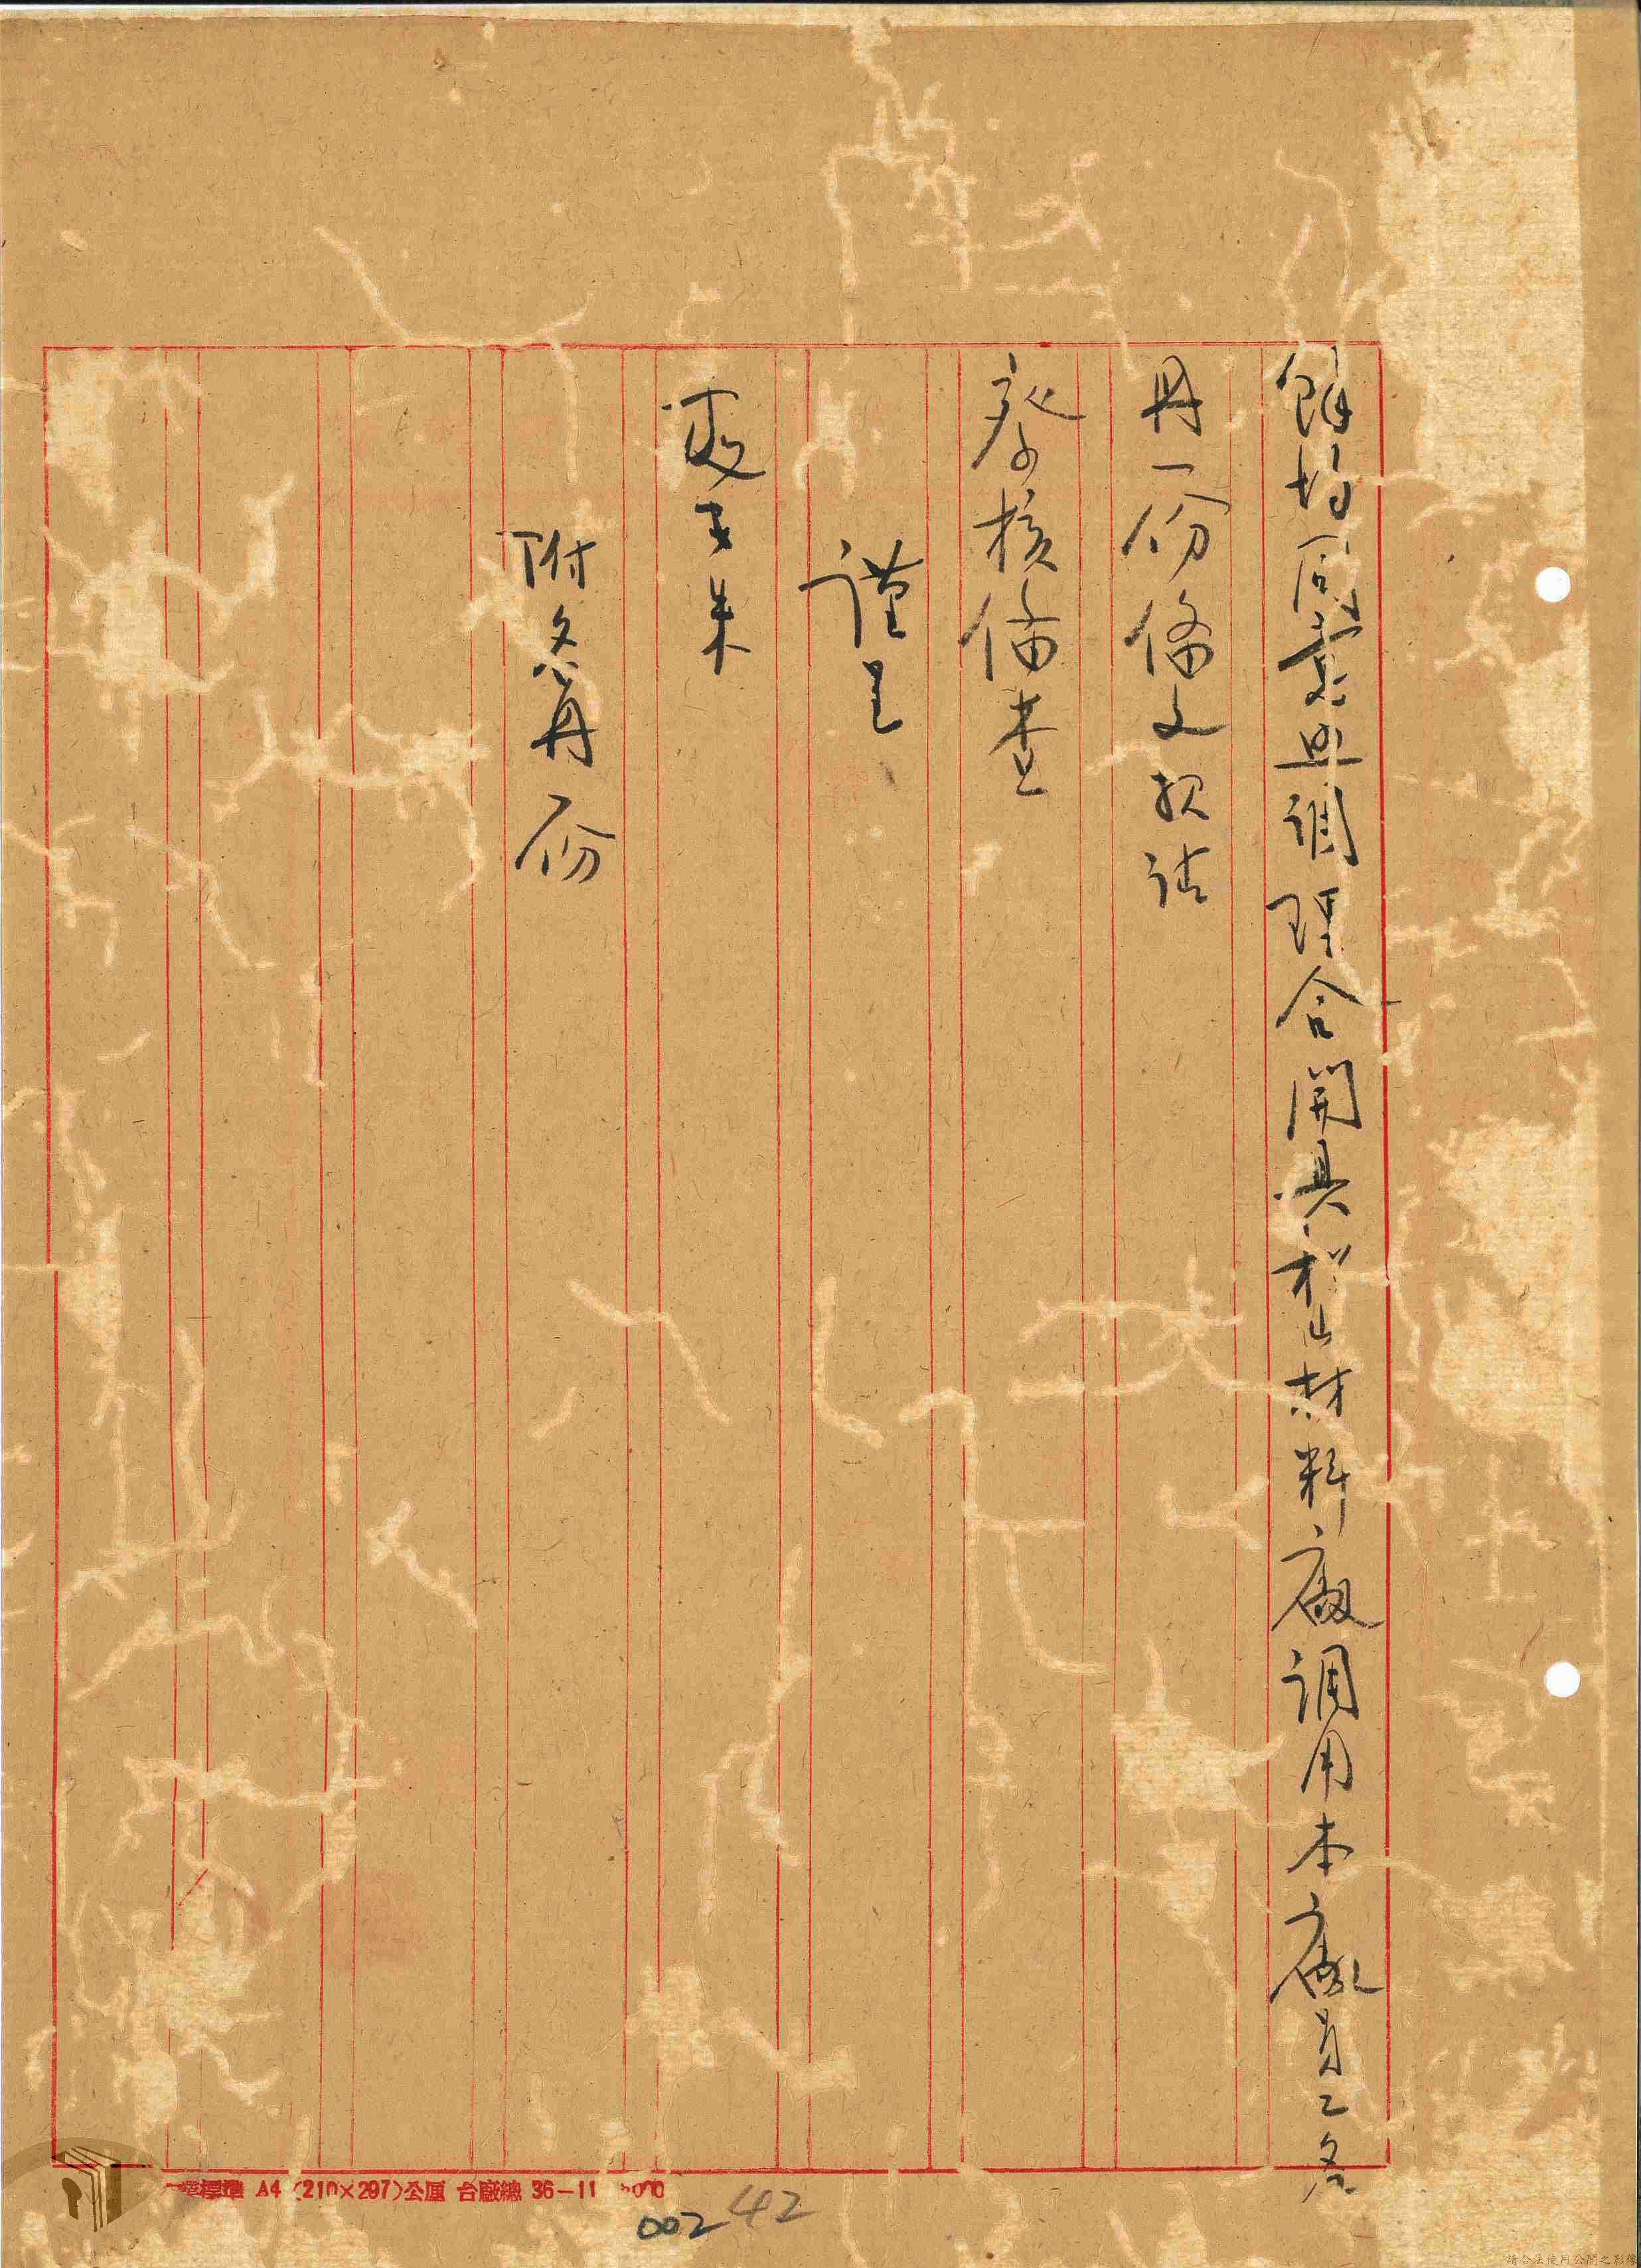 餘均同意照調理合開具松山材料廠調用本廠員工名
冊一份備文報請
察核備查
謹呈
處長朱
附名冊一份
標準 A4 (210×297)公厘 台廠總 36-11
002 42
請合法使用公開之影像